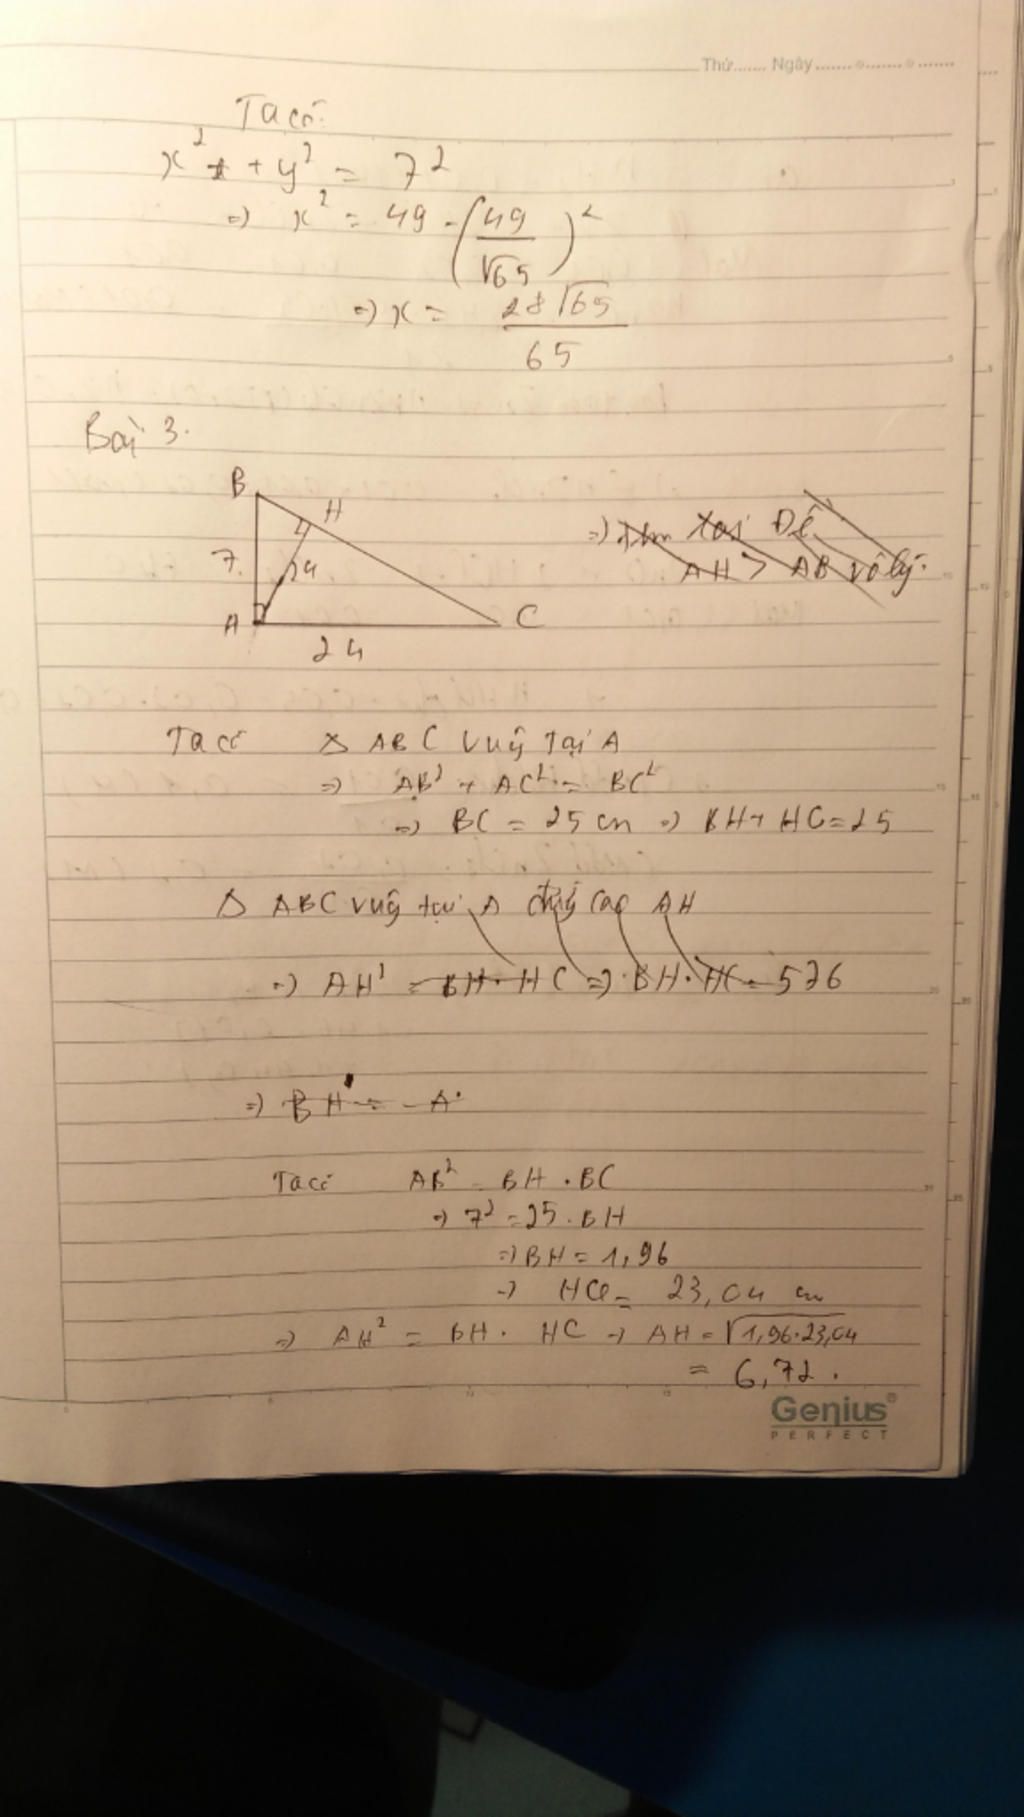 Thứ....... Ngày.....................
Ta có:
x² + y² = 7²
=) x² = 49 - (49/√65)²
=) x = 28√65/65
Bài 3.
B
H
7
24
A
C
24
=) Xai Đề
AH > AB vô lý.
Ta có Δ ABC vug tại A
=) AB² + AC² = BC²
=) BC = 25 cm =) BH + HC = 25
Δ ABC vug tại A đg cao AH
=) AH² = BH. HC =) BH. HC = 576
=) BH = A
Ta có AB² = BH . BC
=) 7² = 25 . BH
=) BH = 1,96
=) HC = 23,04 cm
=) AH² = BH . HC =) AH = √1,96.23,04
= 6,72.
Genius®
PERFECT